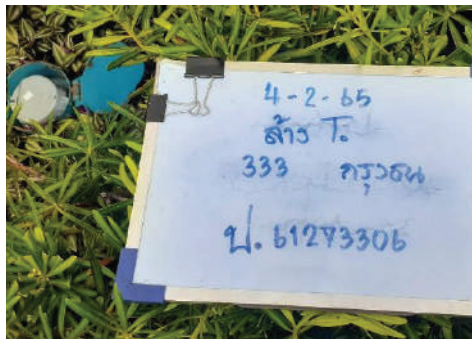 4-2-65
ล้าง T.
333 กรุงธน
ป. 61273306